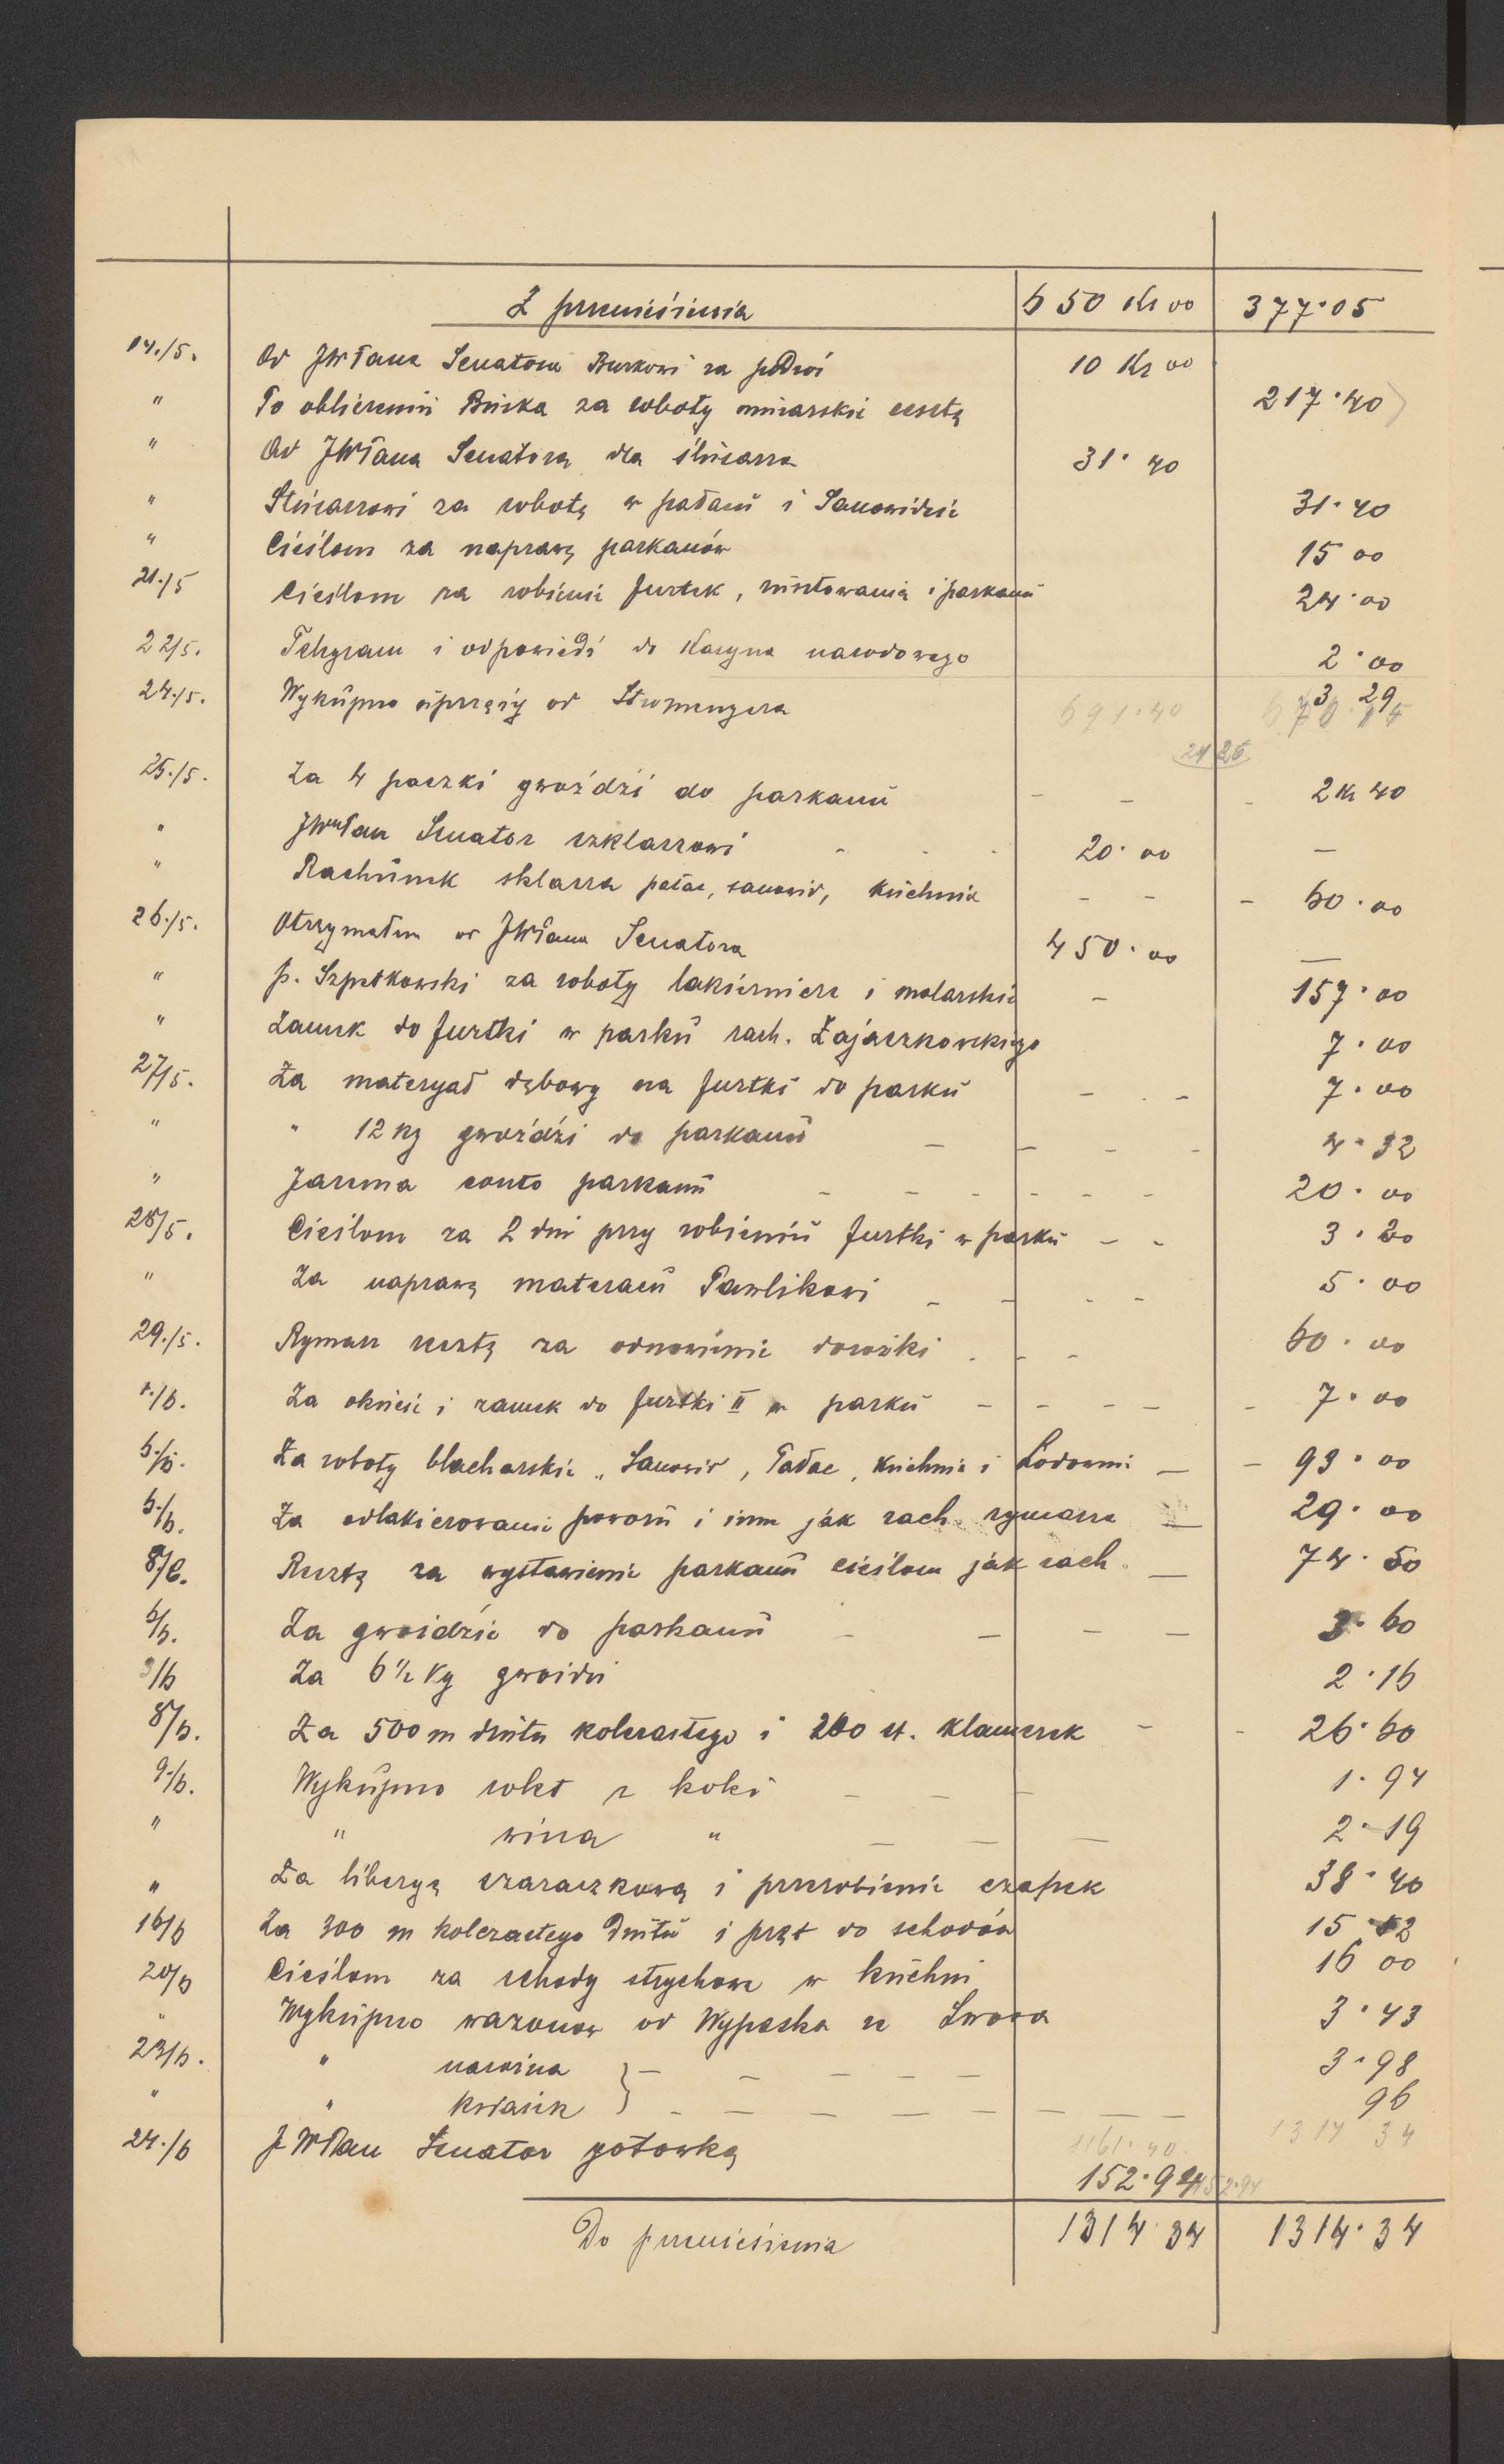 Z przeniesienia 650 Kr 00 377·05
14./5. Od JWPana Senatora Burkowi za podwoi 10 Kr 00
" Po obliczeniu Buska za roboty murarskie resztę 217·40
" Od JWPana Senatora dla ślusarza 31·40
" Slusarzowi za robotę w pałacu i Sanowidzie 31·40
" Cieślom za naprawę parkanów 15 00
21./5 Cieślom za robienie furtek, rusztowania i parkanu 24·00
22/5. Telegram i odpowiedź do Kasyna narodowego 2·00
24./5. Wykupno uprzęży od Stromengera 3 29
691·40
24 25
25./5. Za 4 paczki gwoździ do parkanu - - - 2 Kr 40
" JWPan Senator szklarzowi - - - 20·00 —
" Rachunek sklarza pałac, sanowid, kuchnia - - - 60·00
26./5. Otrzymałem od JWPana Senatora 450·00 —
" p. Szpetkowski za roboty lakiernicze i malarskie - 157·00
" Zamek do furtki w parku rach. Zajączkowskiego 7·00
27/5. Za materyał dębowy na furtki do parku - - - 7·00
" " 12 kg gwoździ do parkanu - - - - 4·32
" Jarema conto parkanu - - - - - - 20·00
28/5. Cieślom za 2 dni przy robieniu furtki w parku - - 3·20
" Za naprawę materacu Pawlikowi - - - - 5·00
29./5. Rymarz resztę za odnowienie dorożki - - - 60·00
1./6. Za okucie i zamek do furtki II w parku - - - - - 7·00
5./6. Za roboty blacharskie „ Sanowid, Pałac, Kuchnia i Lodowni — - 93·00
5./6. Za odlakierowanie powozu i inne jak rach. rymarza — 29·00
8/6. Resztę za wystawienie parkanu cieślom jak rach. — 74·50
6/6. Za gwoździe do parkanu - — - — 3·60
3/6 Za 6½ Kg gwoździ 2·16
8/6. Za 500 m drutu kolczastego i 200 st. klamerek - - 26·60
9./6. Wykupno rolet z kolei - - - 1·94
" " wina " — — — 2·19
" Za liberyę szaraczkową i przerobienie czapek 38·40
16/6 Za 300 m kolczastego drutu i pręt do schodów 15·52
20/6 Cieślom za schody strychowe w kuchni 16 00
" Wykupno wazonów od Wypaska ze Lwowa 3·43
23/6. " nasoina } - - - - - 3·98
" " kwasek } - - - - - - - - 96
1161·40 1314 34
24./6 JWPan Senator gotowką 152·94 152·94
Do przeniesienia 1314 34 1314·34